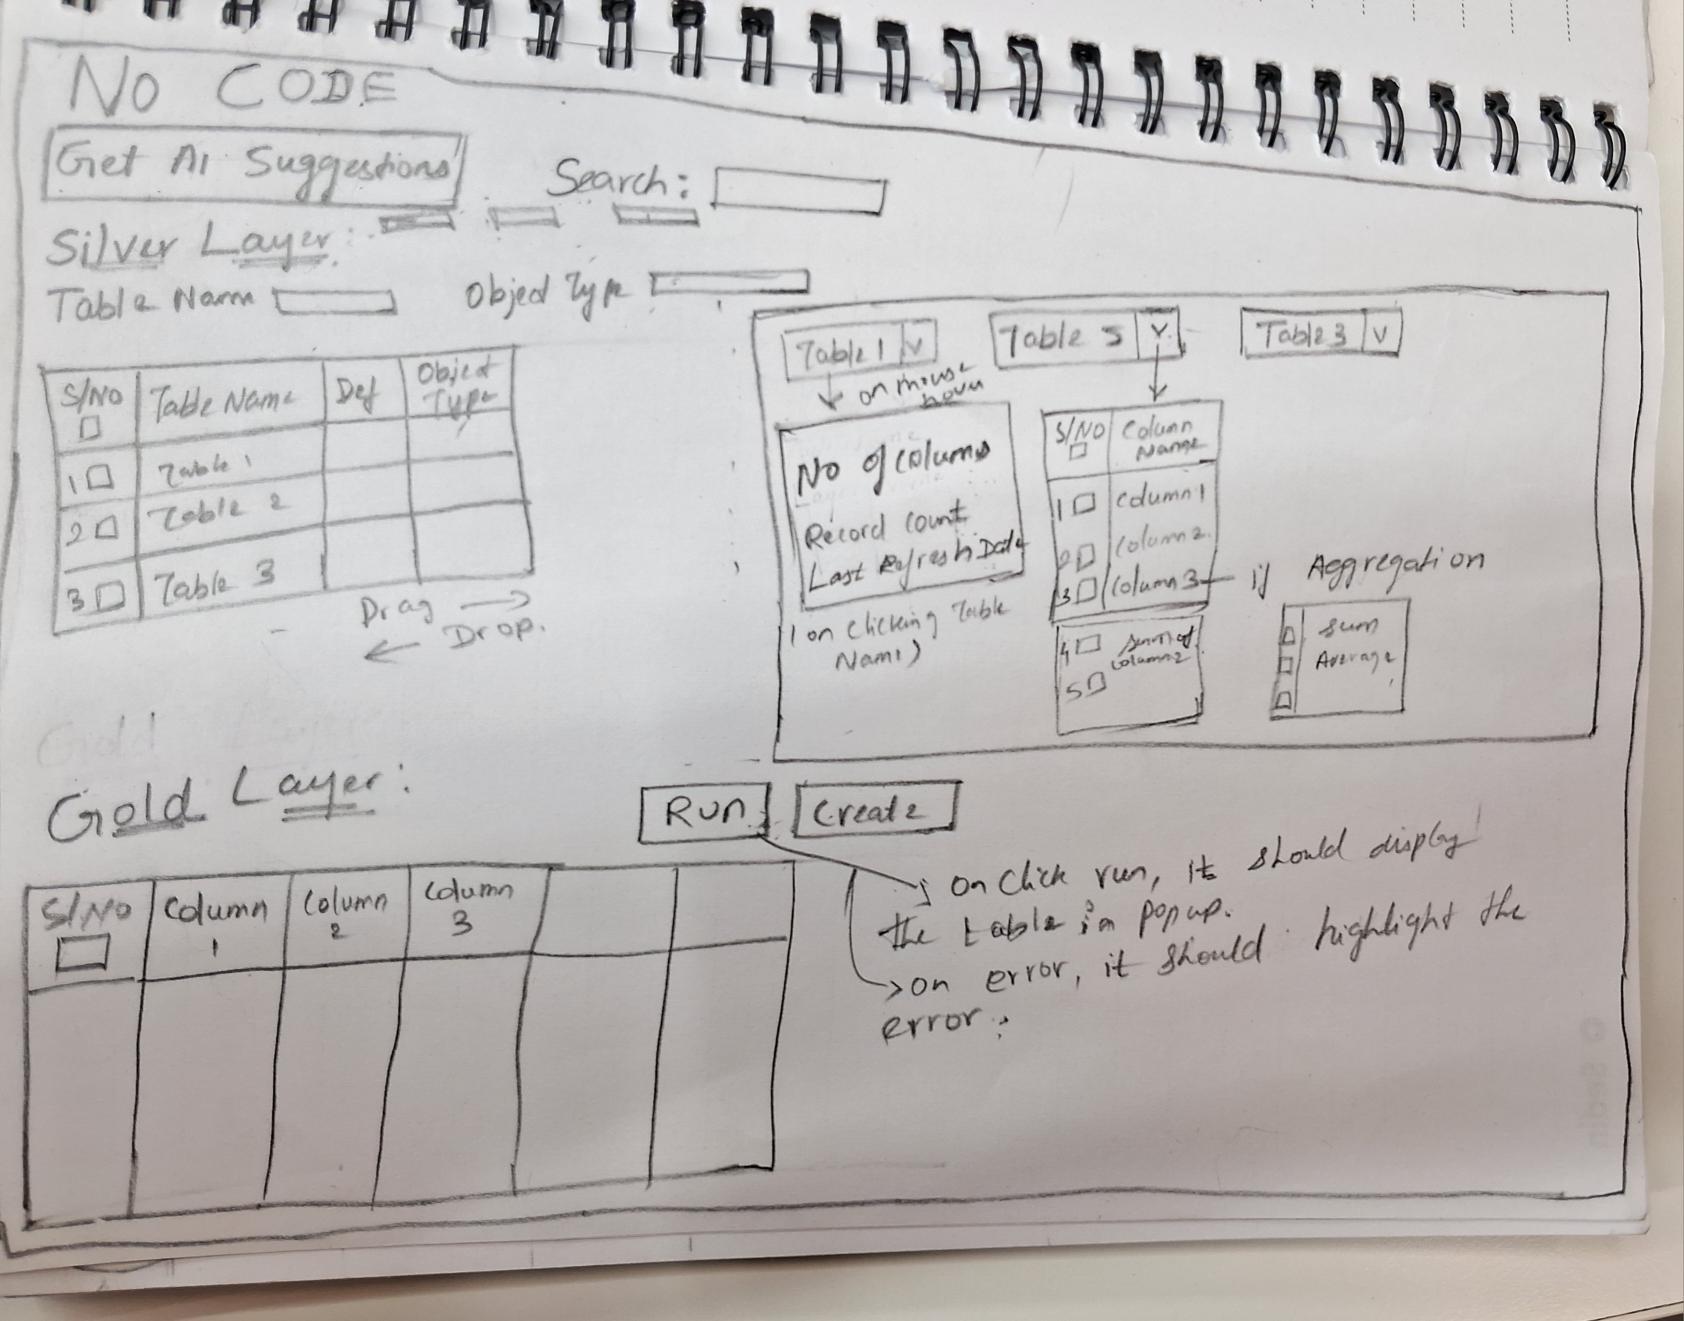 No CODE
Get AI Suggestions
Search:
Silver Layer:
Table Name
Object Type
S/NO
Table Name
Def
Object
Type
1
Table 1
2
Table 2
3
Table 3
Drag
Drop.
Table 1 v
Table 5 v
Table 3 v
on mouse
hover
No of columns
Record count
Last Refresh Date
(on clicking Table
Name)
S/NO
Column
Name
1
Column 1
2
Column 2
3
Column 3
if Aggregation
4
Sum of
Column 2
5
Sum
Average
Gold Layer
Gold Layer:
Run
Create
S/No
Column
1
Column
2
Column
3
on click run, it should display
the table in popup.
on error, it should highlight the
error.